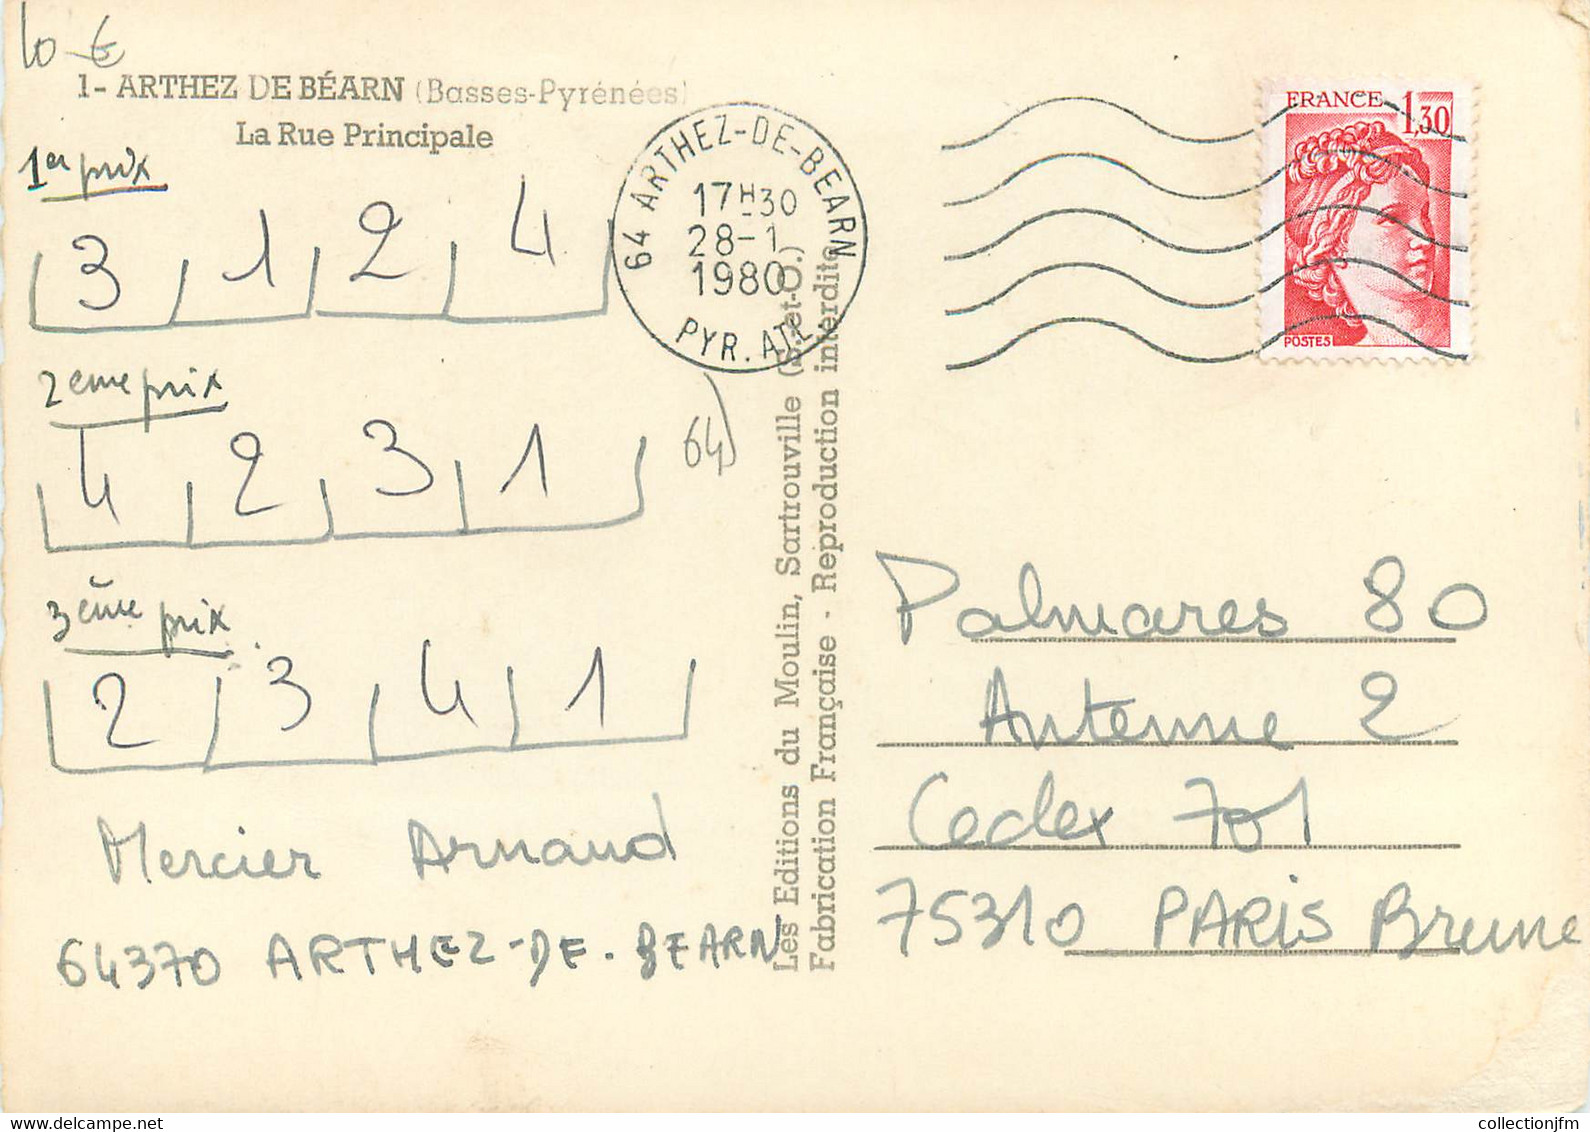 10 €
1- ARTHEZ DE BÉARN (Basses-Pyrénées)
La Rue Principale
1er prix
3 1 2 4
2eme prix
4 2 3 1
3ème prix
2 3 4 1
Mercier Arnaud
64370 ARTHEZ-DE-BEARN
64 ARTHEZ-DE-BEARN
17H30
28-1
1980
PYR. ATL
64)
Les Editions du Moulin, Sartrouville (S.-et-O.)
Fabrication Française - Reproduction interdite
FRANCE 1,30
POSTES
Palmares 80
Antenne 2
Cedex 701
75310 PARIS Brune
collectionjfm